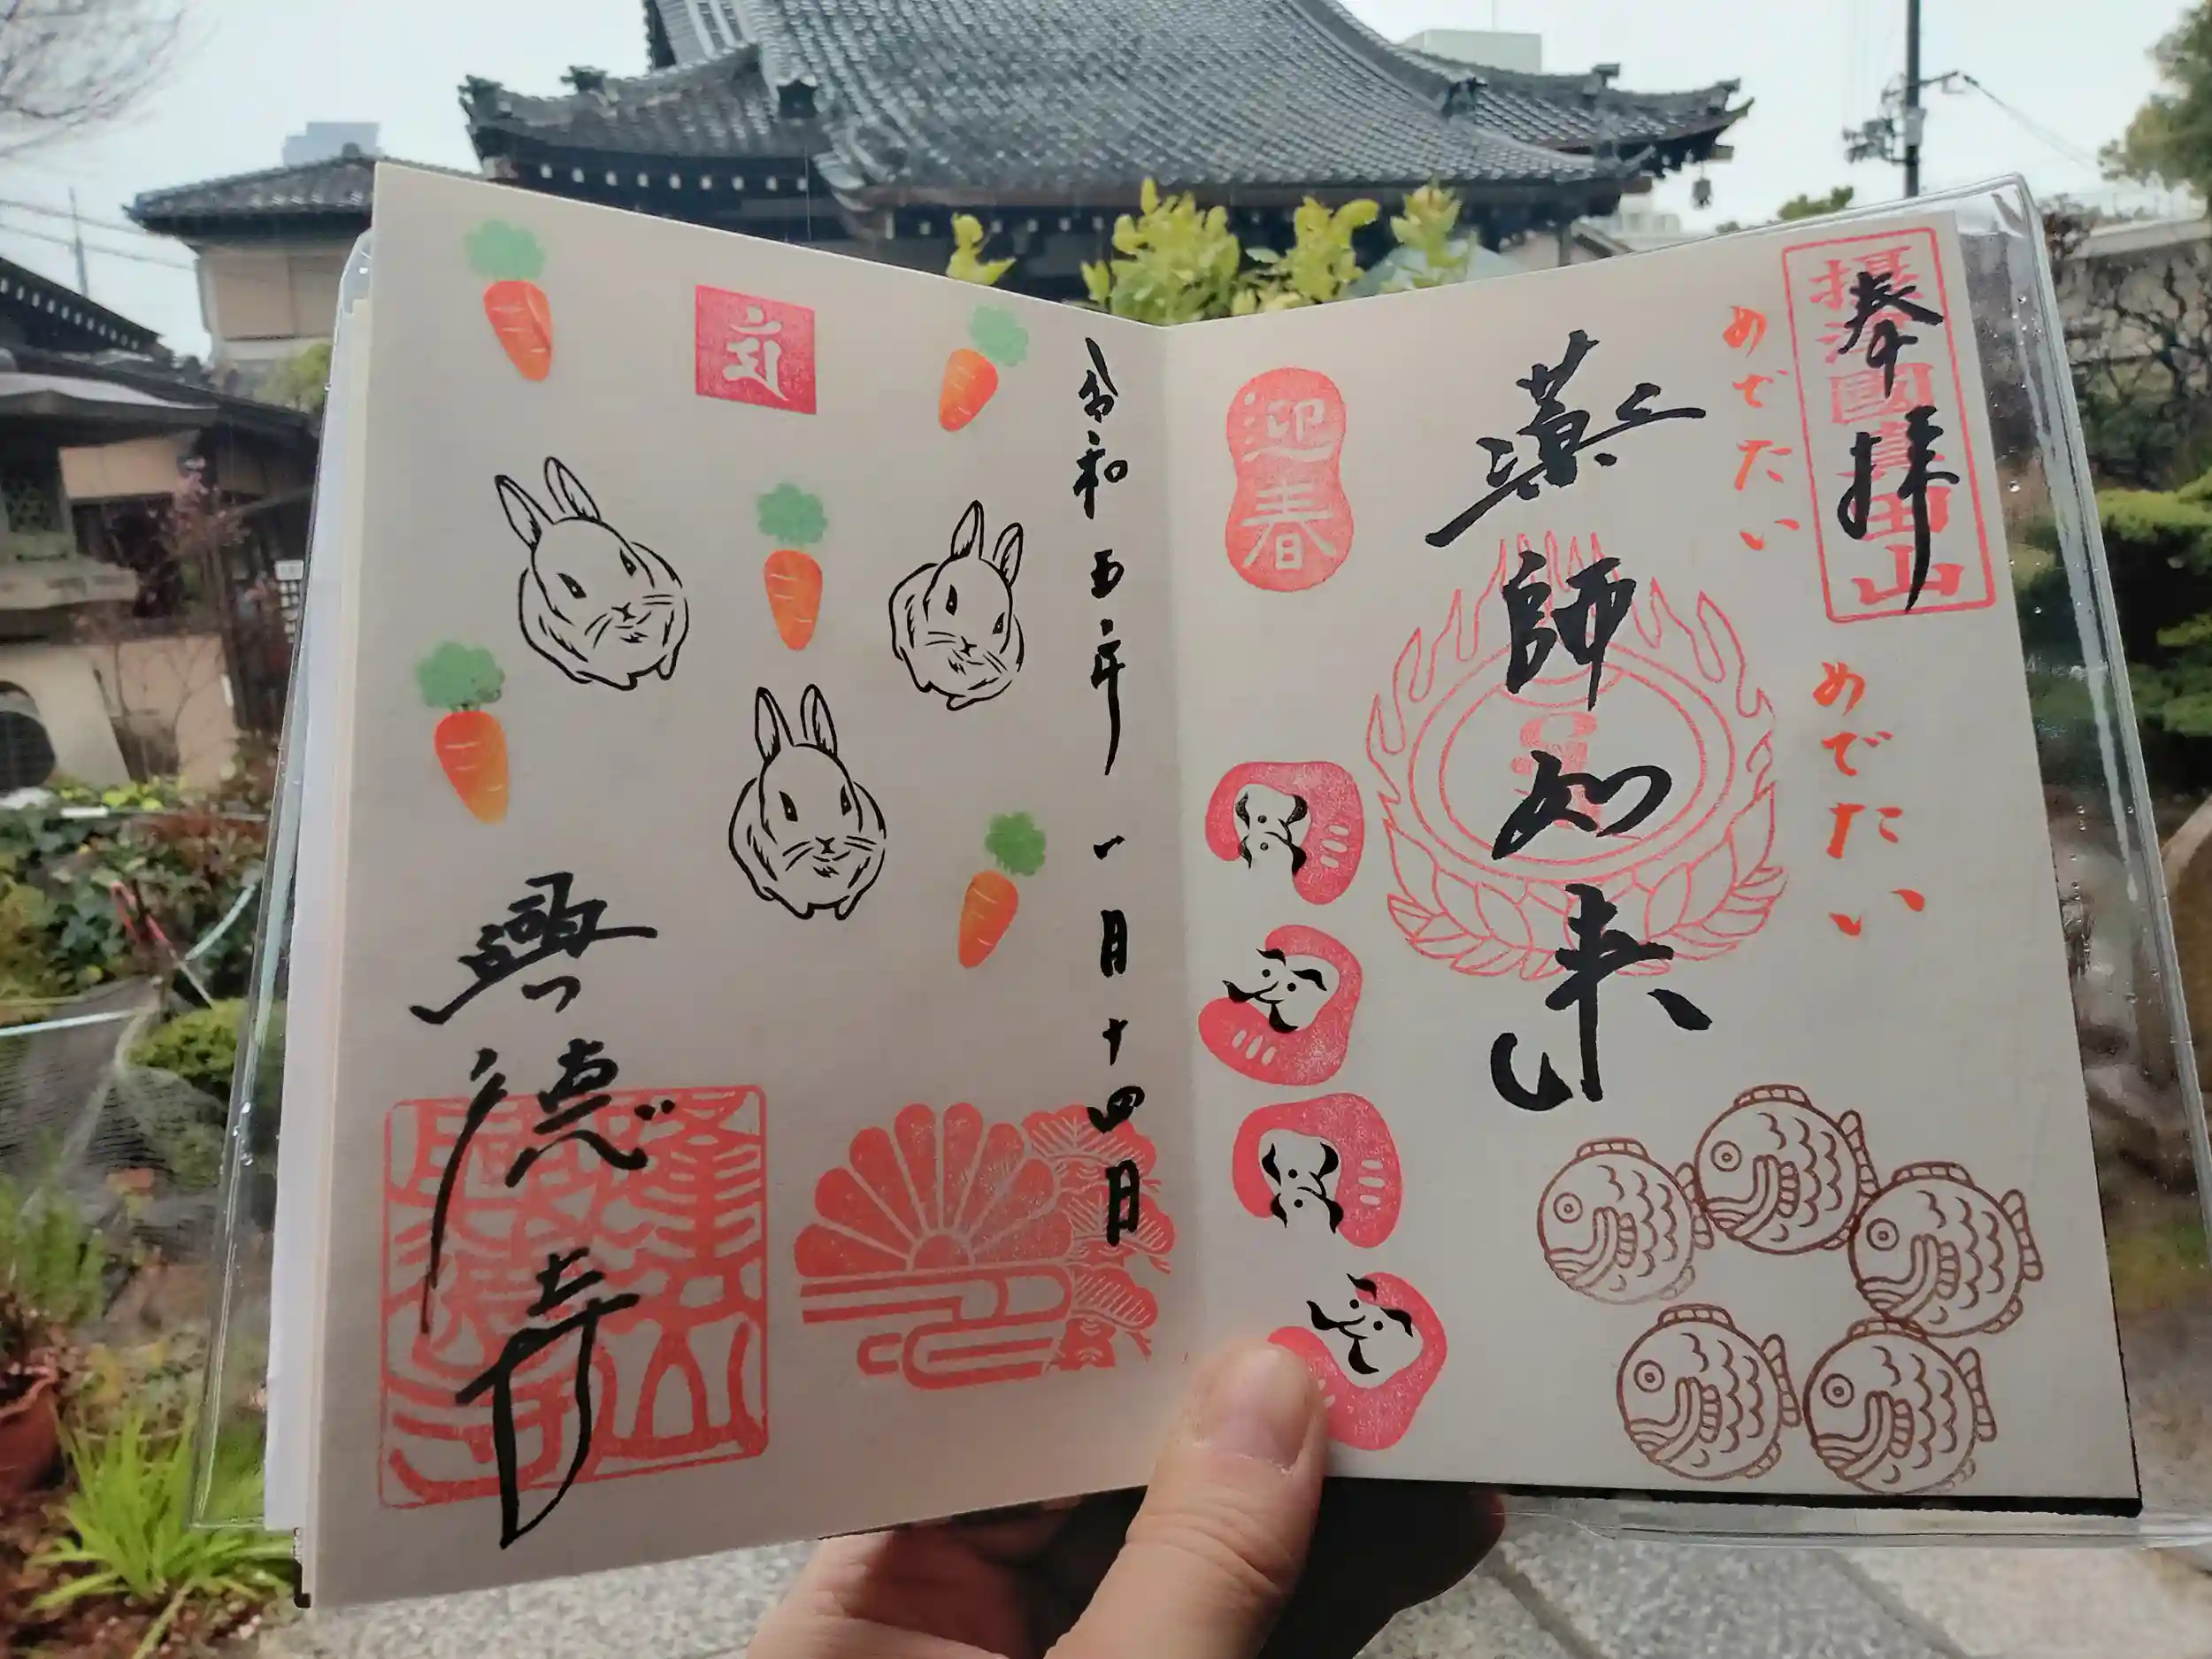 奉拝
摂津國真田山
めでたい
めでたい
薬師如来
迎春
令和五年 一月十四日
興德寺